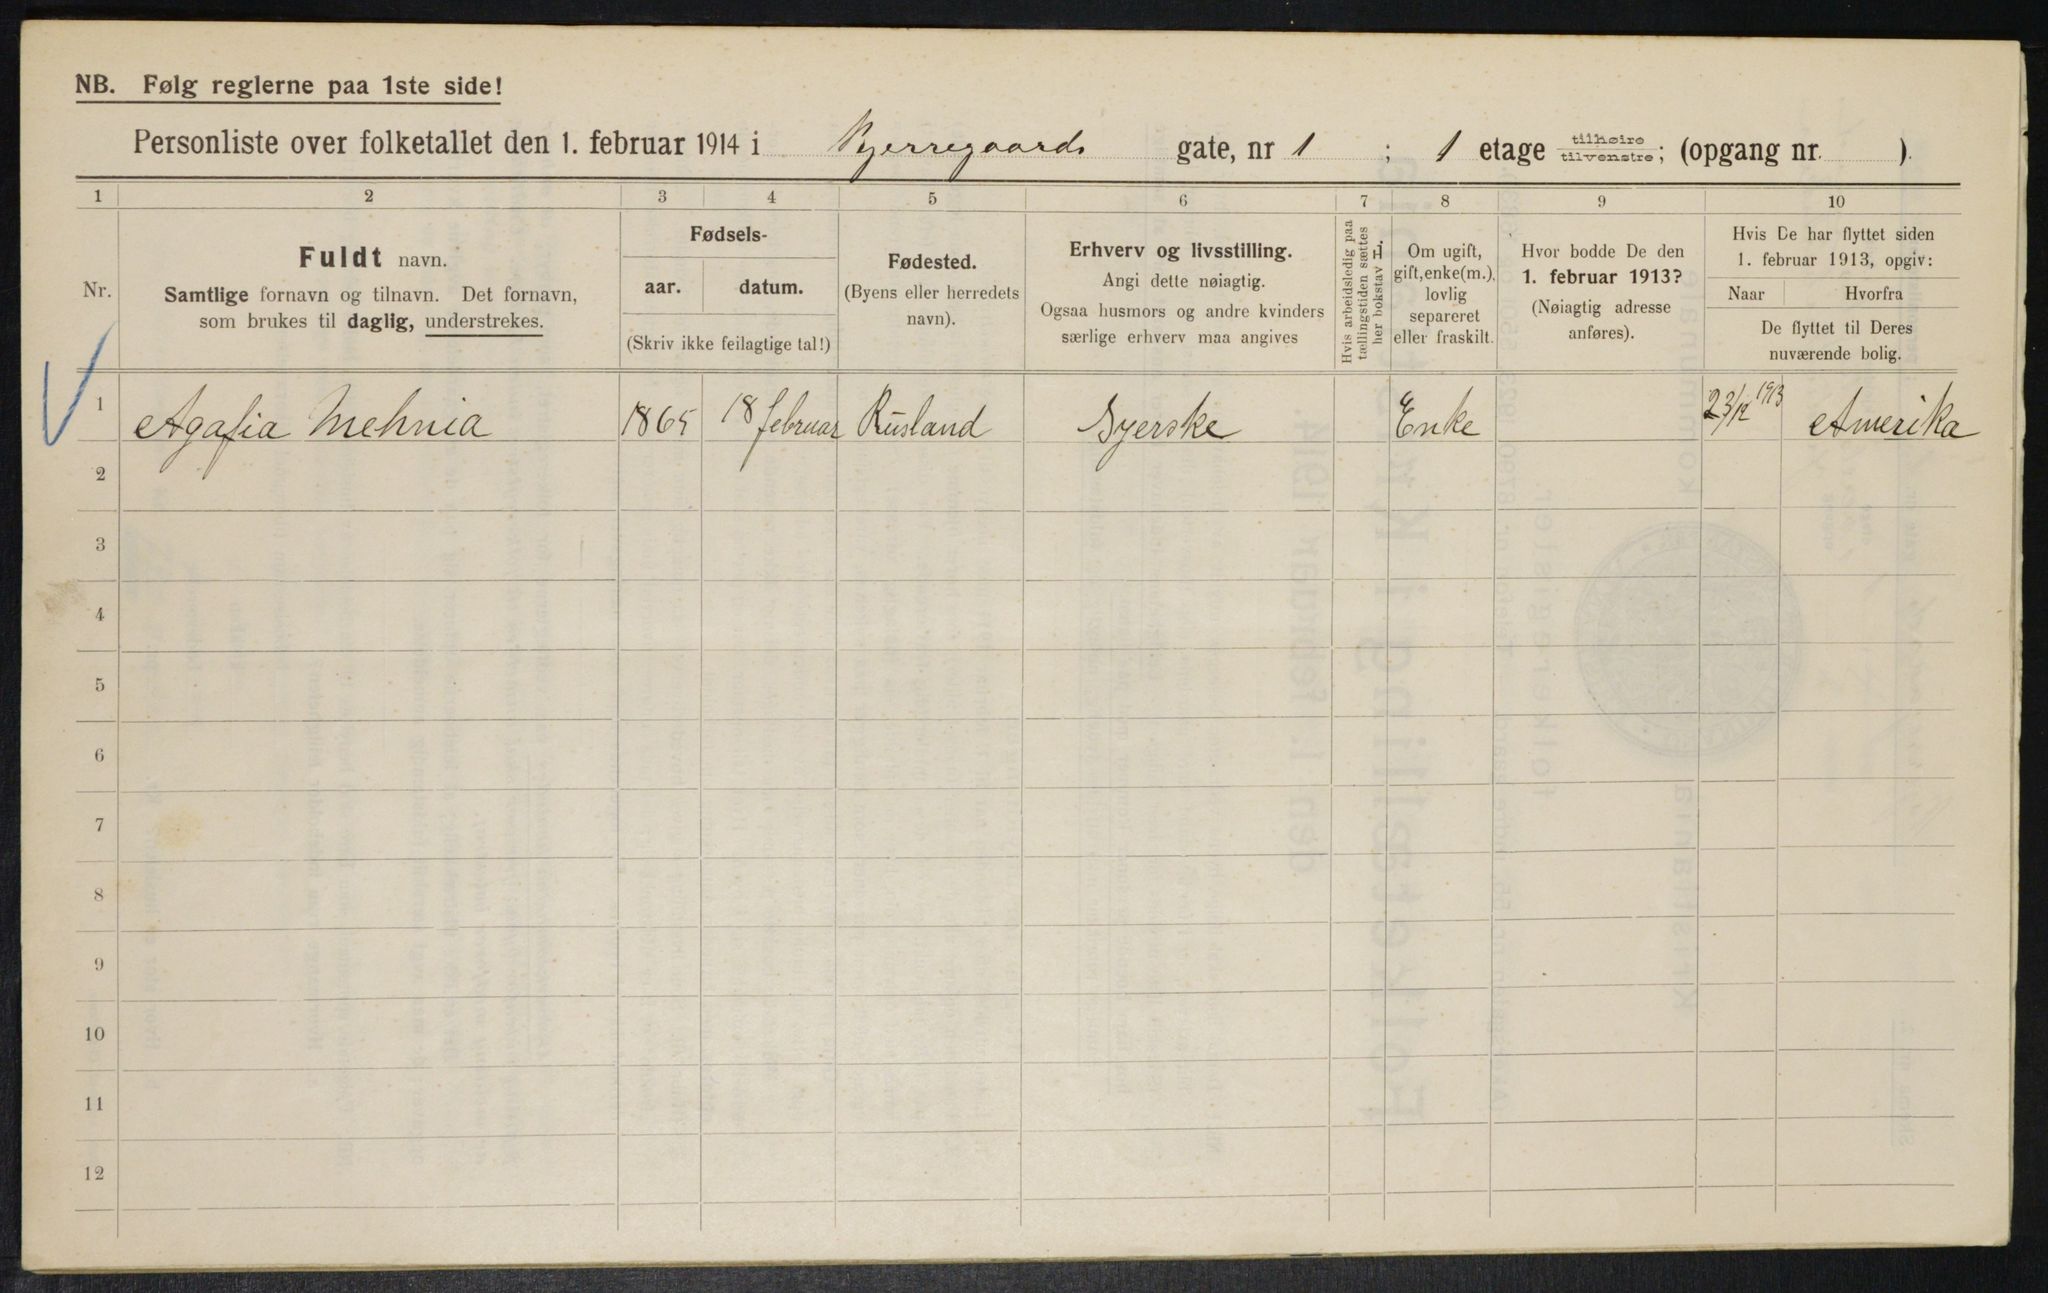 NB. Følg reglerne paa 1ste side!
Personliste over folketallet den 1. februar 1914 i Bjerregaards gate, nr 1 ; 1 etage tilhøire tilvenstre; (opgang nr. ).
1 2 3 4 5 6 7 8 9 10
Nr.
Fuldt navn.
Samtlige fornavn og tilnavn. Det fornavn,
som brukes til daglig, understrekes.
Fødsels-
aar. datum.
(Skriv ikke feilagtige tal!)
Fødested.
(Byens eller herredets
navn).
Erhverv og livsstilling.
Angi dette nøiagtig.
Ogsaa husmors og andre kvinders
særlige erhverv maa angives
Hvis arbeidsledig paa
tællingstiden sættes
her bokstav L.
Om ugift,
gift, enke(m.),
lovlig
separeret
eller fraskilt.
Hvor bodde De den
1. februar 1913?
(Nøiagtig adresse
anføres).
Hvis De har flyttet siden
1. februar 1913, opgiv:
Naar Hvorfra
De flyttet til Deres
nuværende bolig.
1 Agafia Mehnia 1865 18 februar Rusland Syerske Enke 23/12 1913 Amerika
2
3
4
5
6
7
8
9
10
11
12